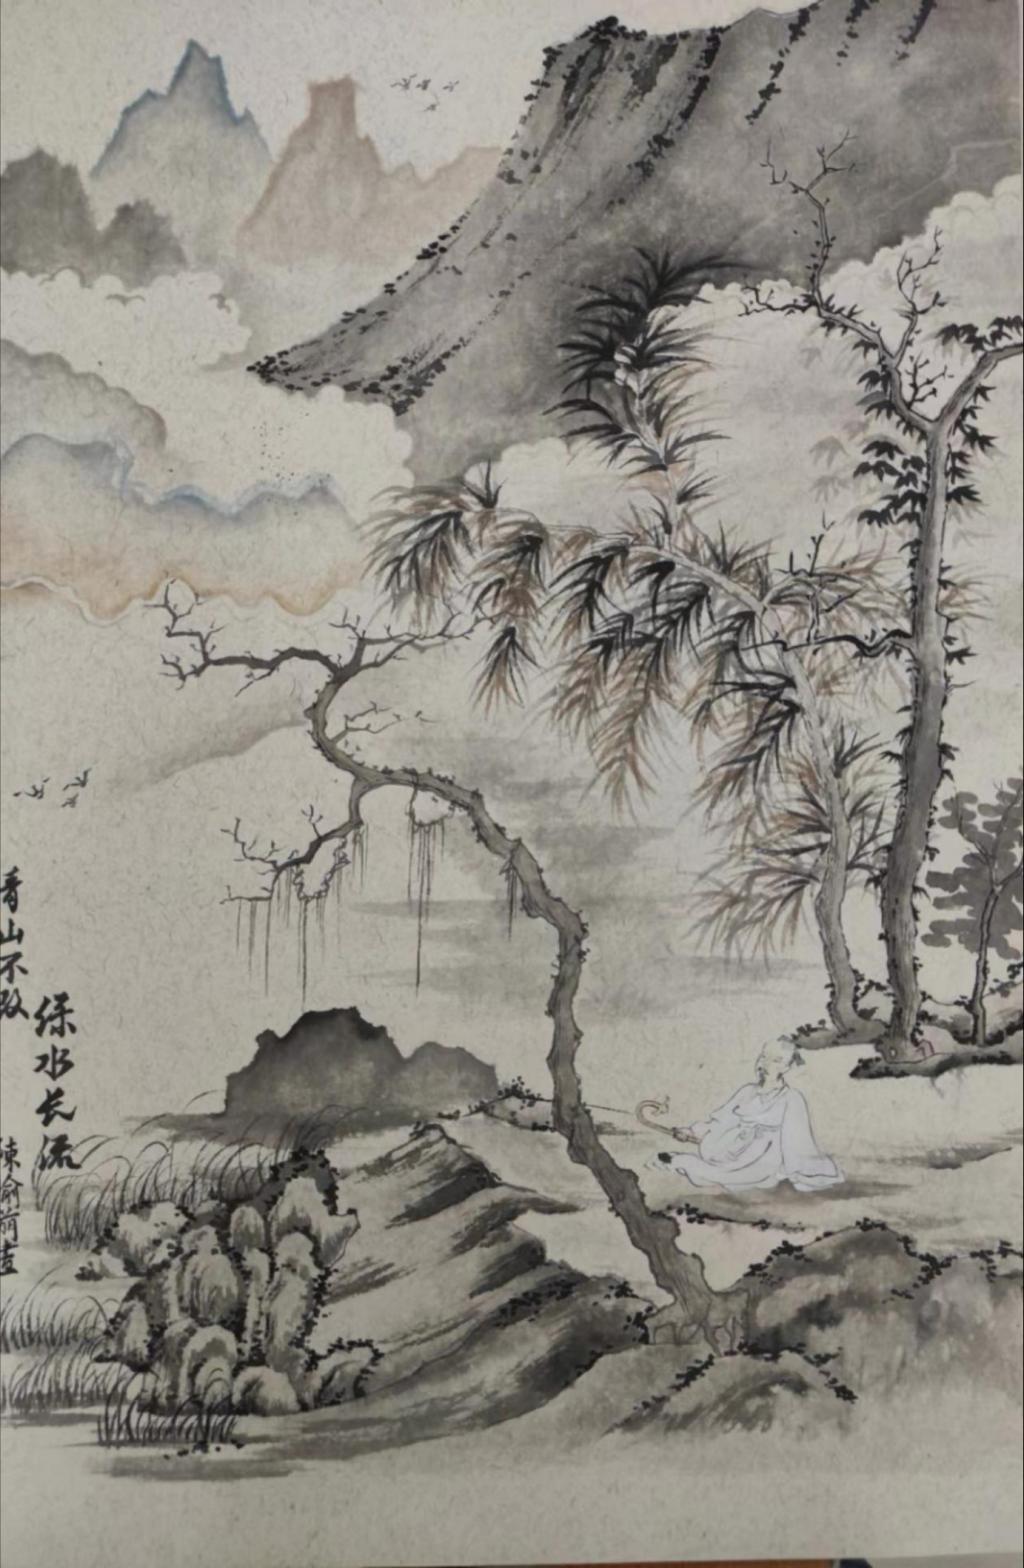 青山不改
绿水长流
陳俞